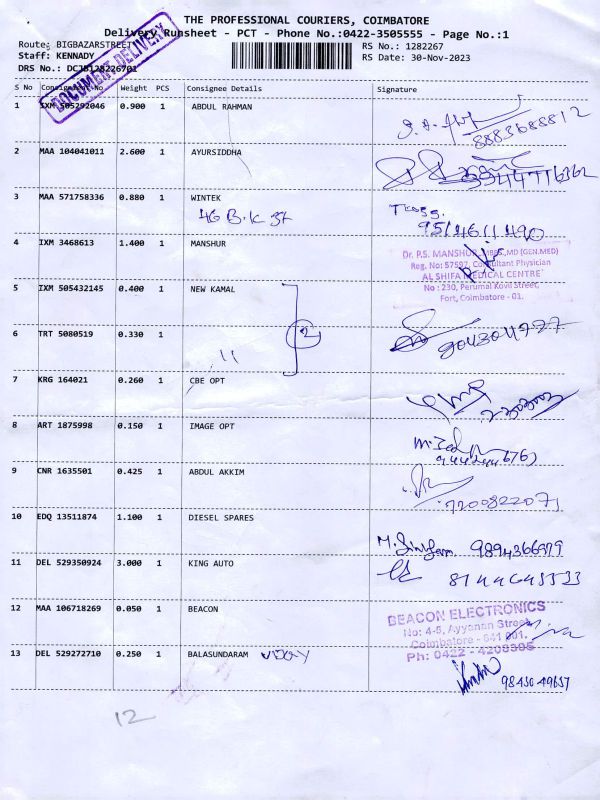 THE PROFESSIONAL COURIERS, COIMBATORE
Delivery Runsheet - PCT - Phone No.:0422-3505555 - Page No.:1
Route: BIGBAZARSTREET RS No.: 1282267
Staff: KENNADY RS Date: 30-Nov-2023
DRS No.: DCJB128226701
DOCUMENT DELIVERY
S No Consignment No Weight PCS Consignee Details Signature
1 IXM 505292046 0.900 1 ABDUL RAHMAN
8883688812
2 MAA 104041011 2.600 1 AYURSIDDHA
3 MAA 571758336 0.880 1 WINTEK
46 B.K St
4 IXM 3468613 1.400 1 MANSHUR
Dr. P.S. MANSHUR, MBBS.,MD (GEN.MED)
Reg. No: 57597, Consultant Physician
AL SHIFA MEDICAL CENTRE
No : 230, Perumal Kovil Street,
Fort, Coimbatore - 01.
5 IXM 505432145 0.400 1 NEW KAMAL
2
6 TRT 5080519 0.330 1
11
7 KRG 164021 0.260 1 CBE OPT
8 ART 1875998 0.150 1 IMAGE OPT
9 CNR 1635501 0.425 1 ABDUL AKKIM
7200822071
10 EDQ 13511874 1.100 1 DIESEL SPARES
11 DEL 529350924 3.000 1 KING AUTO
12 MAA 106718269 0.050 1 BEACON
BEACON ELECTRONICS
No: 4-5, Ayyanan Street,
Coimbatore - 641 001.
Ph: 0422 - 4208395
13 DEL 529272710 0.250 1 BALASUNDARAM
98430 49657
12